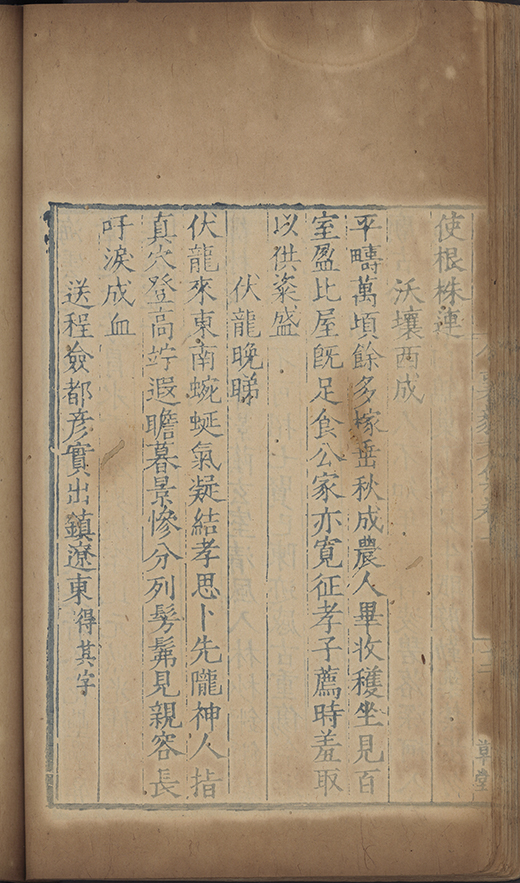 使根株連
沃壤西成
平疇萬頃餘多稼垂秋成農人畢收穫坐見百
室盈比屋既足食公家亦寬征孝子薦時羞取
以供粢盛
伏龍晚睇
伏龍來東南蜿蜒氣凝結孝思卜先隴神人指
真穴登高竚遐瞻暮景慘分列髣髴見親容長
吁淚成血
送程僉都彥實出鎮遼東得其字
草堂